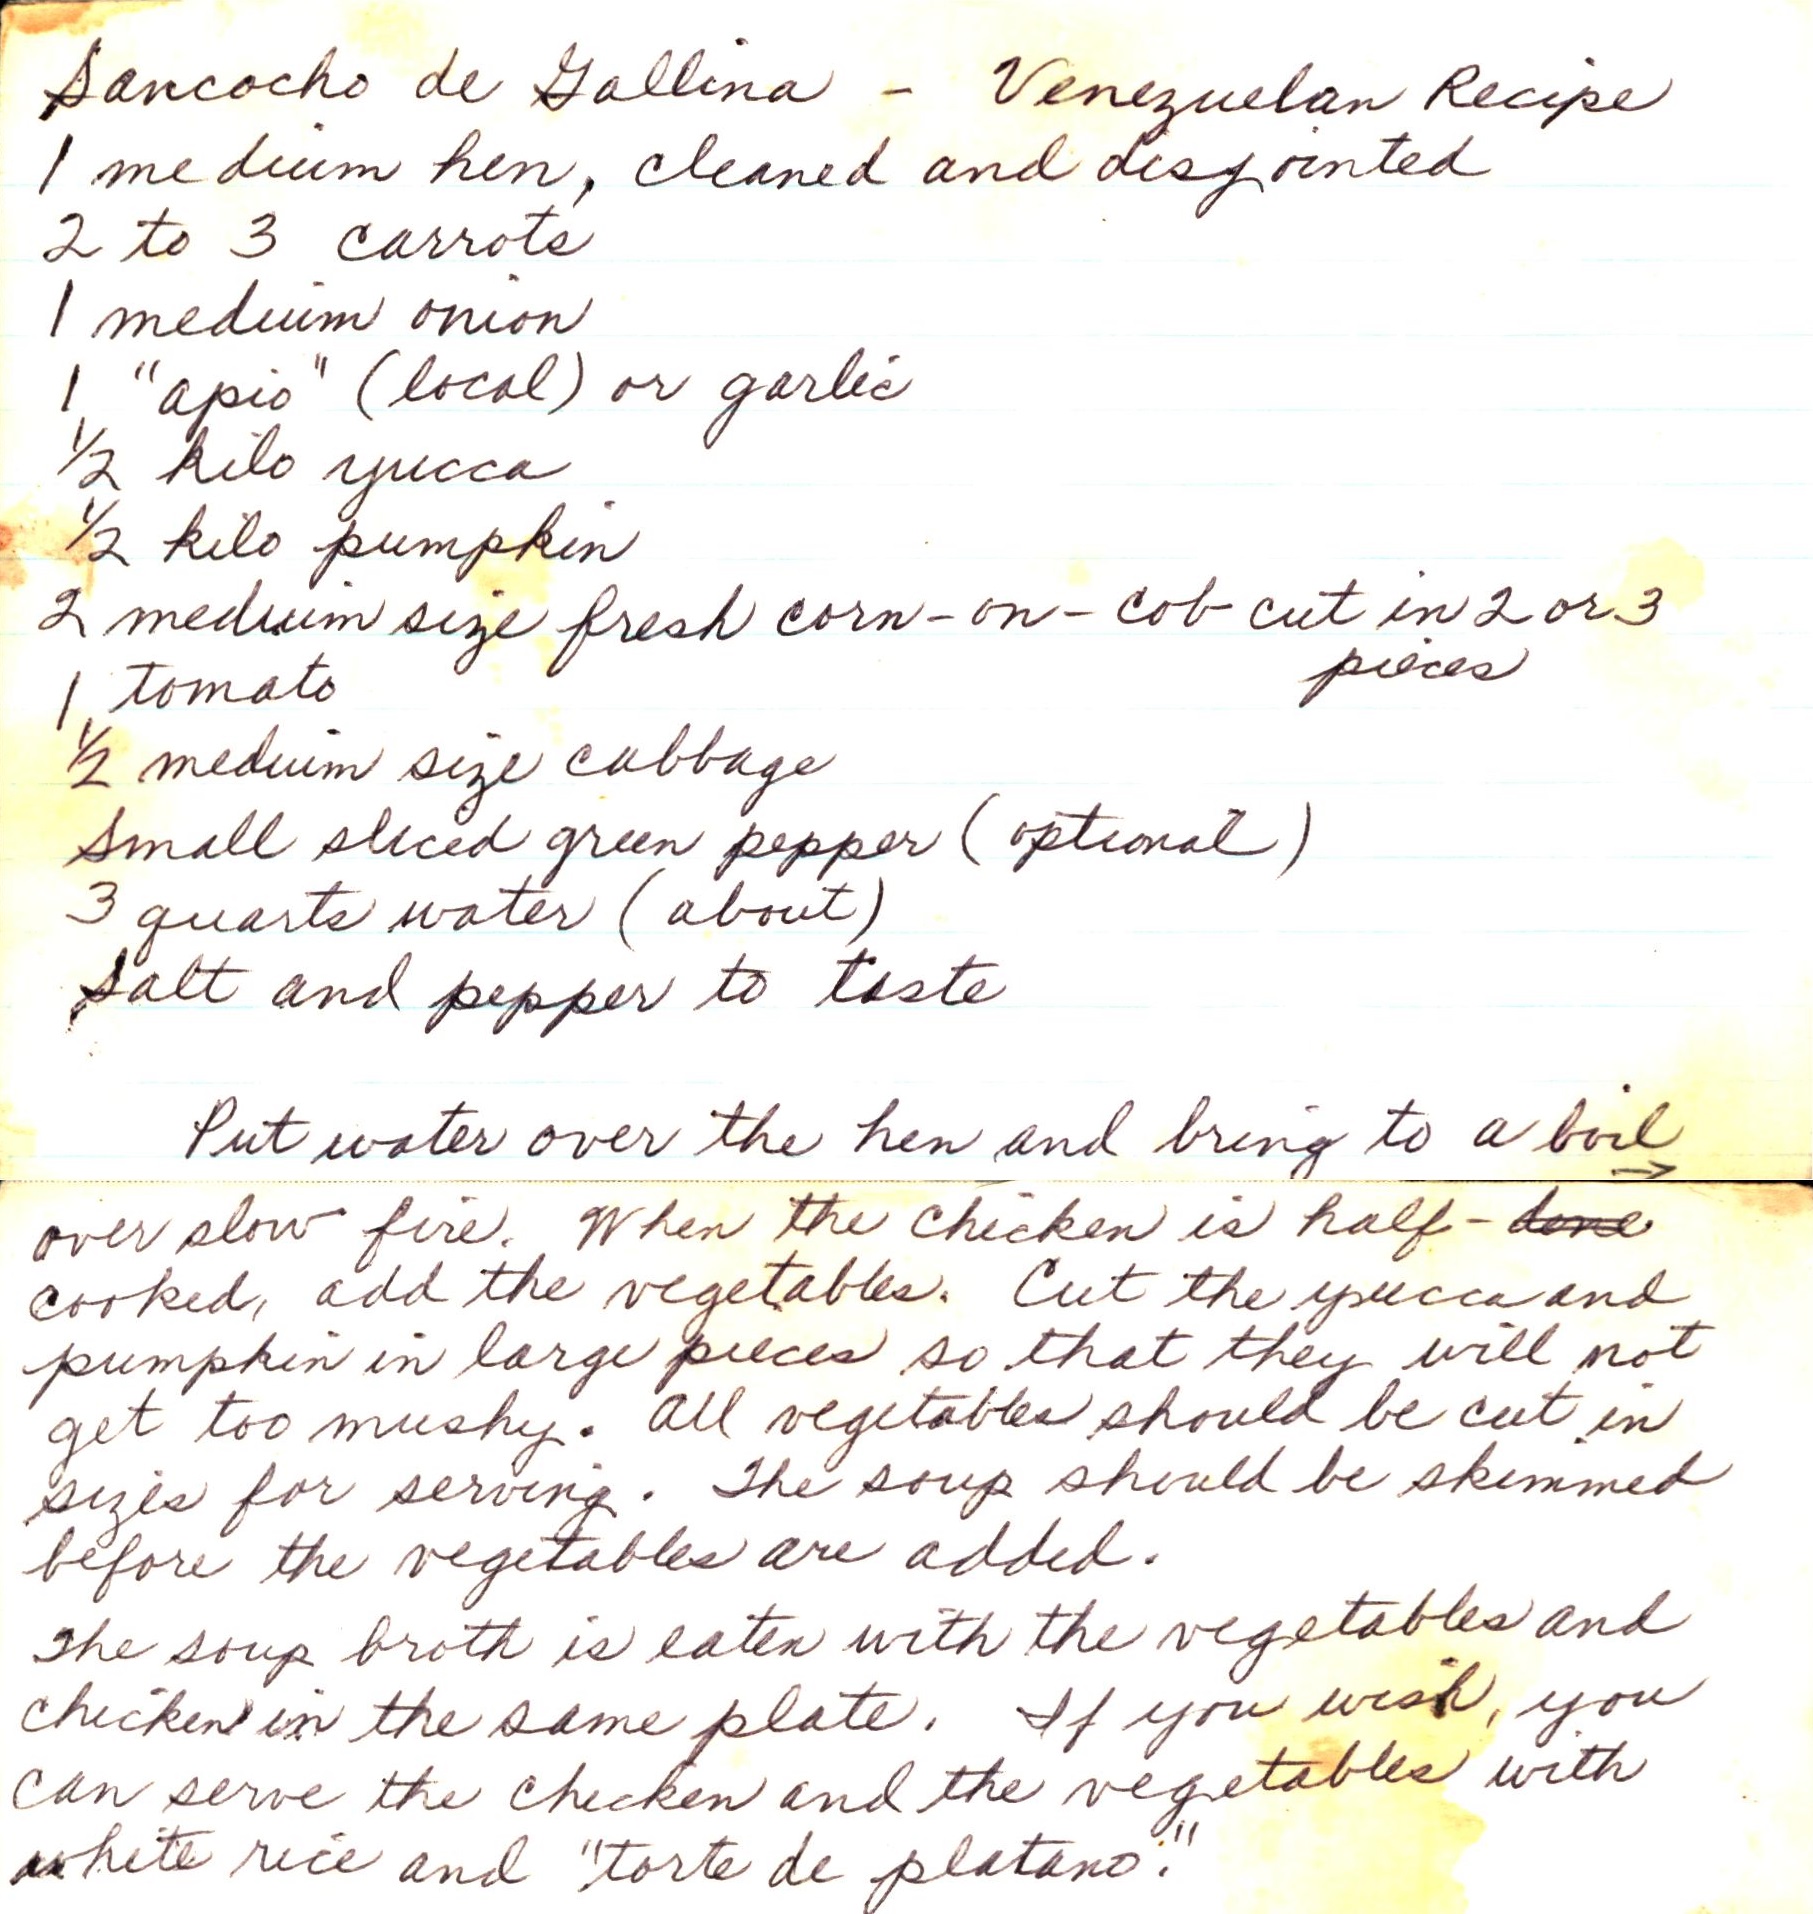 Sancocho de Gallina - Venezuelan Recipe
1 medium hen, cleaned and disjointed
2 to 3 carrots
1 medium onion
1 "apio" (local) or garlic
1/2 kilo yucca
1/2 kilo pumpkin
2 medium size fresh corn-on-cob cut in 2 or 3
pieces
1 tomato
1/2 medium size cabbage
Small sliced green pepper (optional)
3 quarts water (about)
Salt and pepper to taste
Put water over the hen and bring to a boil
→
over slow fire. When the chicken is half-done
cooked, add the vegetables. Cut the yucca and
pumpkin in large pieces so that they will not
get too mushy. All vegetables should be cut in
sizes for serving. The soup should be skimmed
before the vegetables are added.
The soup broth is eaten with the vegetables and
chicken in the same plate. If you wish, you
can serve the chicken and the vegetables with
white rice and "torte de platano."